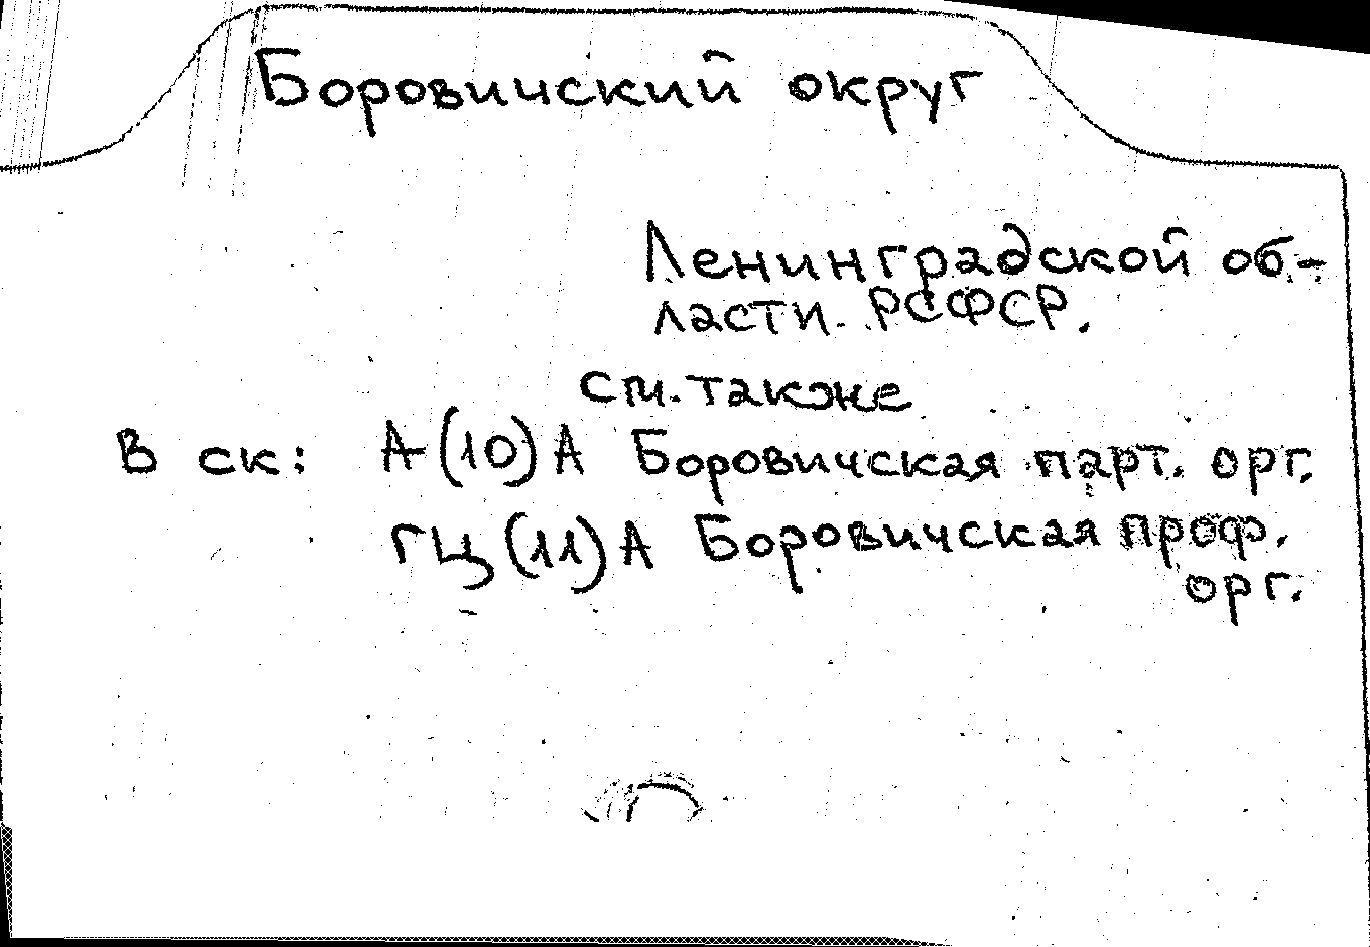 Боровичский округ
Ленинградской об-
ласти. РСФСР.
см. также
В ск: А(10)А Боровичская парт. орг.
ГЦ(11)А Боровичская проф.
орг.